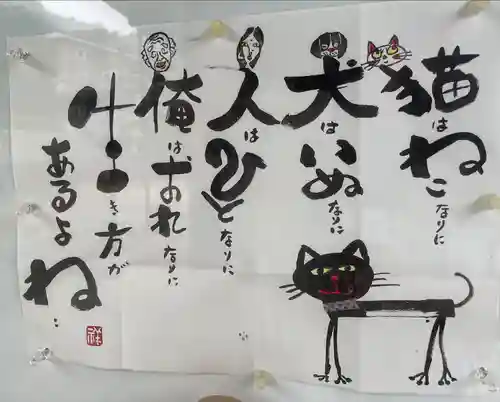 猫はねこなりに
犬はいぬなりに
人はひとなりに
俺はおれなりに
生き方が
あるよね‥
祥